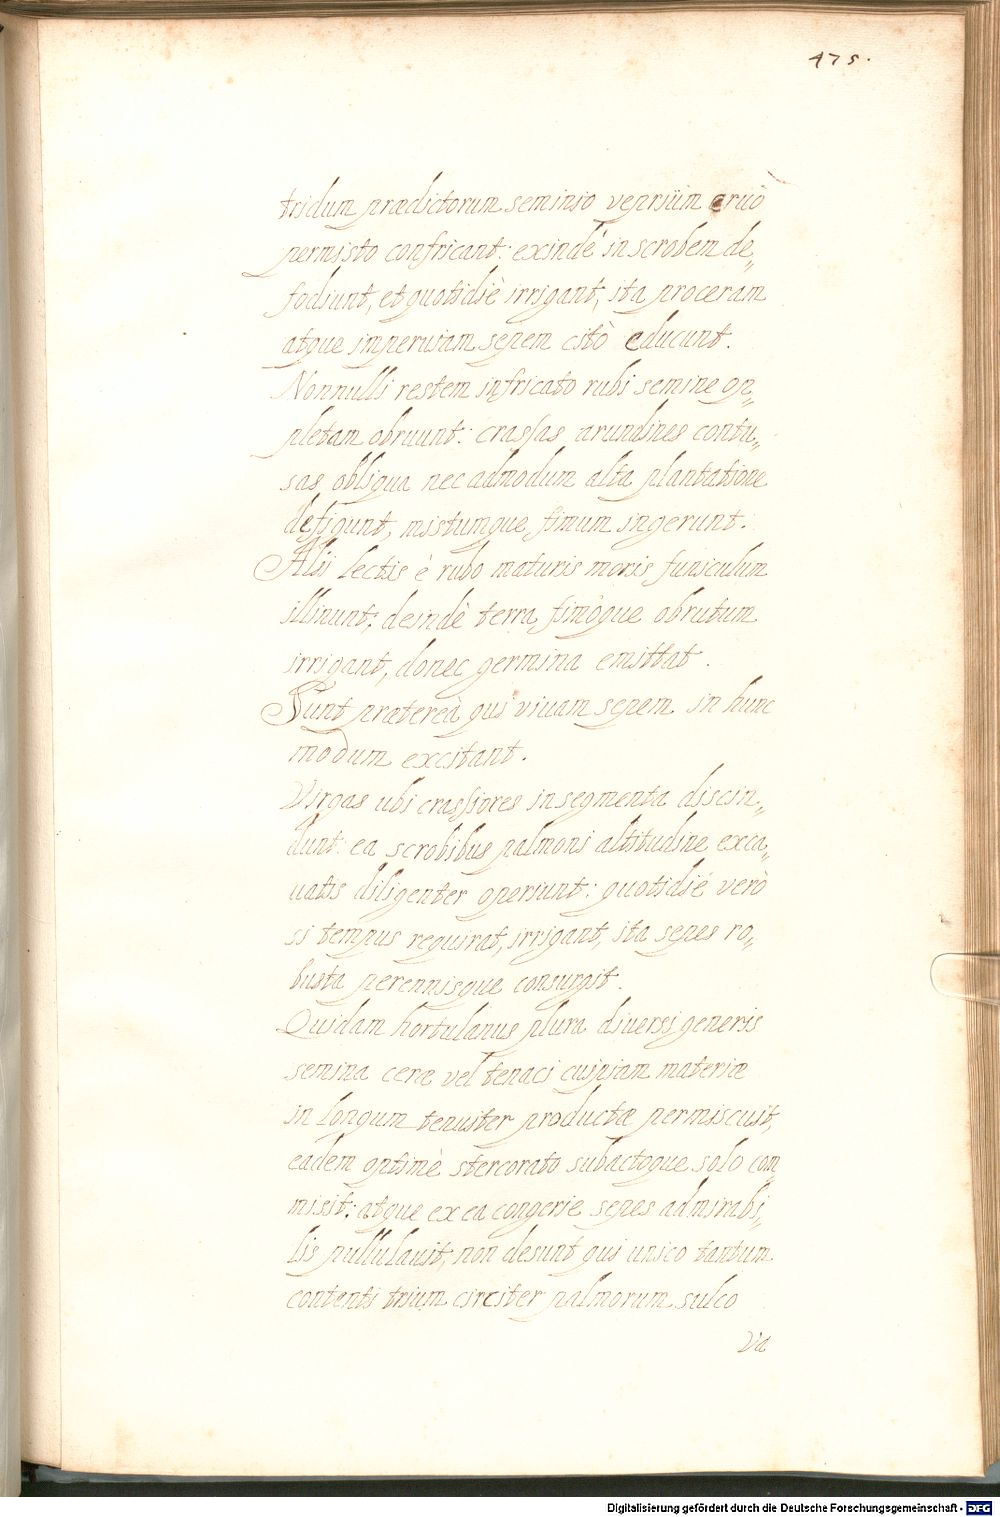 475.
tridum prædictorum seminio vepriũm eruò
permisto confricant: exindè in scrobem de„
fodiunt, et quotidiè irrigant, ita proceram
atque imperuiam sepem citò educunt.
Nonnulli restem infricato rubi semine op„
pletam obruunt: crassas arundines contu„
sas obliqua nec admodum alta plantatione
defigunt, mistumque fimum ingerunt.
Alii lectis è rubo maturis moris funiculum
illinunt; deindè terra fimòque obrutum
irrigant, donec germina emittat.
Sunt prætereà qui viuam sepem in hunc
modum excitant.
Virgas ubi crassiores in segmenta discin„
dunt: ea scrobibus palmoni altitudine exca„
uatis diligenter operiunt: quotidié verò
si tempus requirat, irrigant, ita sepes ro„
busta perennisque consurgit.
Quidam hortulanus plura diuersi generis
semina ceræ vel tenaci cuipiam materiæ
in longum tenuiter productæ permiscuit,
eadem optimè stercorato subactoque solo com„
misit: atque ex ea congerie sepes admirabi„
lis pullulauit, non desunt qui unico tantum
contenti trium circiter palmorum sulco
Va
Digitalisierung gefördert durch die Deutsche Forschungsgemeinschaft - DFG